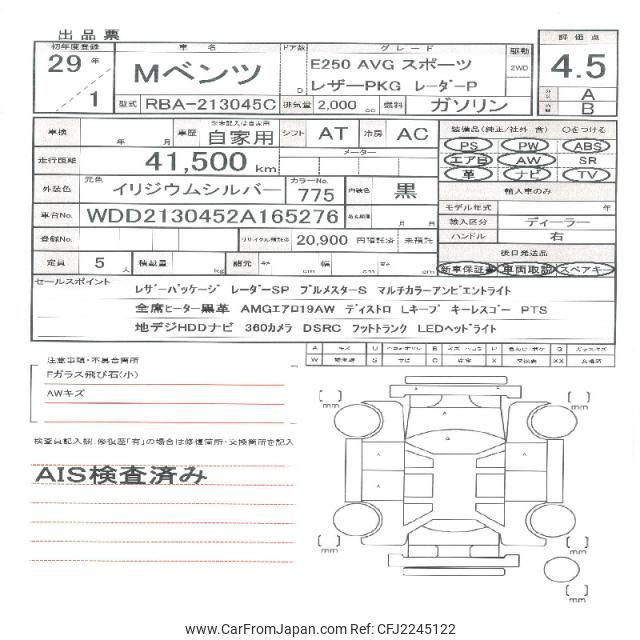 出品票
初年度登録 車名 ドア数 グレード 駆動 評価点
29年 Mベンツ D E250 AVG スポーツ 2WD 4.5
1 レザーPKG レーダーP A
型式 RBA-213045C 排気量 2,000 cc 燃料 ガソリン B
車検 年 月 車歴 自家用 シフト AT 冷房 AC 装備品(純正/社外 含) ○をつける
PS PW ABS
走行距離 41,500 km メーター エアB AW SR
革 ナビ TV
外装色 元色 イリジウムシルバー カラーNo. 775 内装色 黒 輸入車のみ
モデル年式 年
車台No. WDD2130452A165276 月 日 輸入区分 ディーラー
ハンドル 右
登録No. リサイクル預託金 20,900 円預託済 未預託 後日発送品
定員 5人 積載量 kg 諸元 長さ cm 幅 cm 高さ cm 新車保証書 車両取説 スペアキー
セールスポイント
レザーパッケージ レーダーSP ブルメスターS マルチカラーアンビエントライト
全席ヒーター黒革 AMGエアロ19AW ディストロ Lキープ キーレスゴー PTS
地デジHDDナビ 360カメラ DSRC フットトランク LEDヘッドライト
注意事項・不具合箇所
Fガラス飛び石(小)
AWキズ
検査員記入欄.修復歴「有」の場合は修復箇所・交換箇所を記入
AIS検査済み
mm mm
mm mm
mm
www.CarFromJapan.com Ref: CFJ2245122